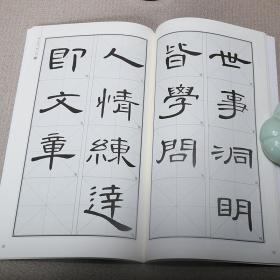 世事洞明
皆學問
人情練達
即文章